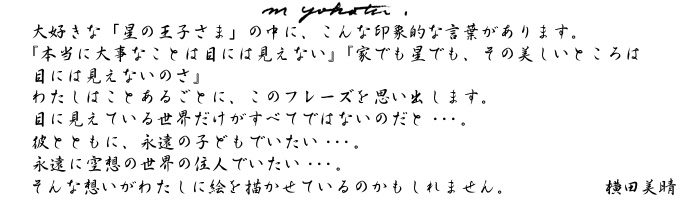 m yokota.
大好きな「星の王子さま」の中に、こんな印象的な言葉があります。
『本当に大事なことは目には見えない』『家でも星でも、その美しいところは
目には見えないのさ』
わたしはことあるごとに、このフレーズを思い出します。
目に見えている世界だけがすべてではないのだと・・・。
彼とともに、永遠の子どもでいたい・・・。
永遠に空想の世界の住人でいたい・・・。
そんな想いがわたしに絵を描かせているのかもしれません。 横田美晴